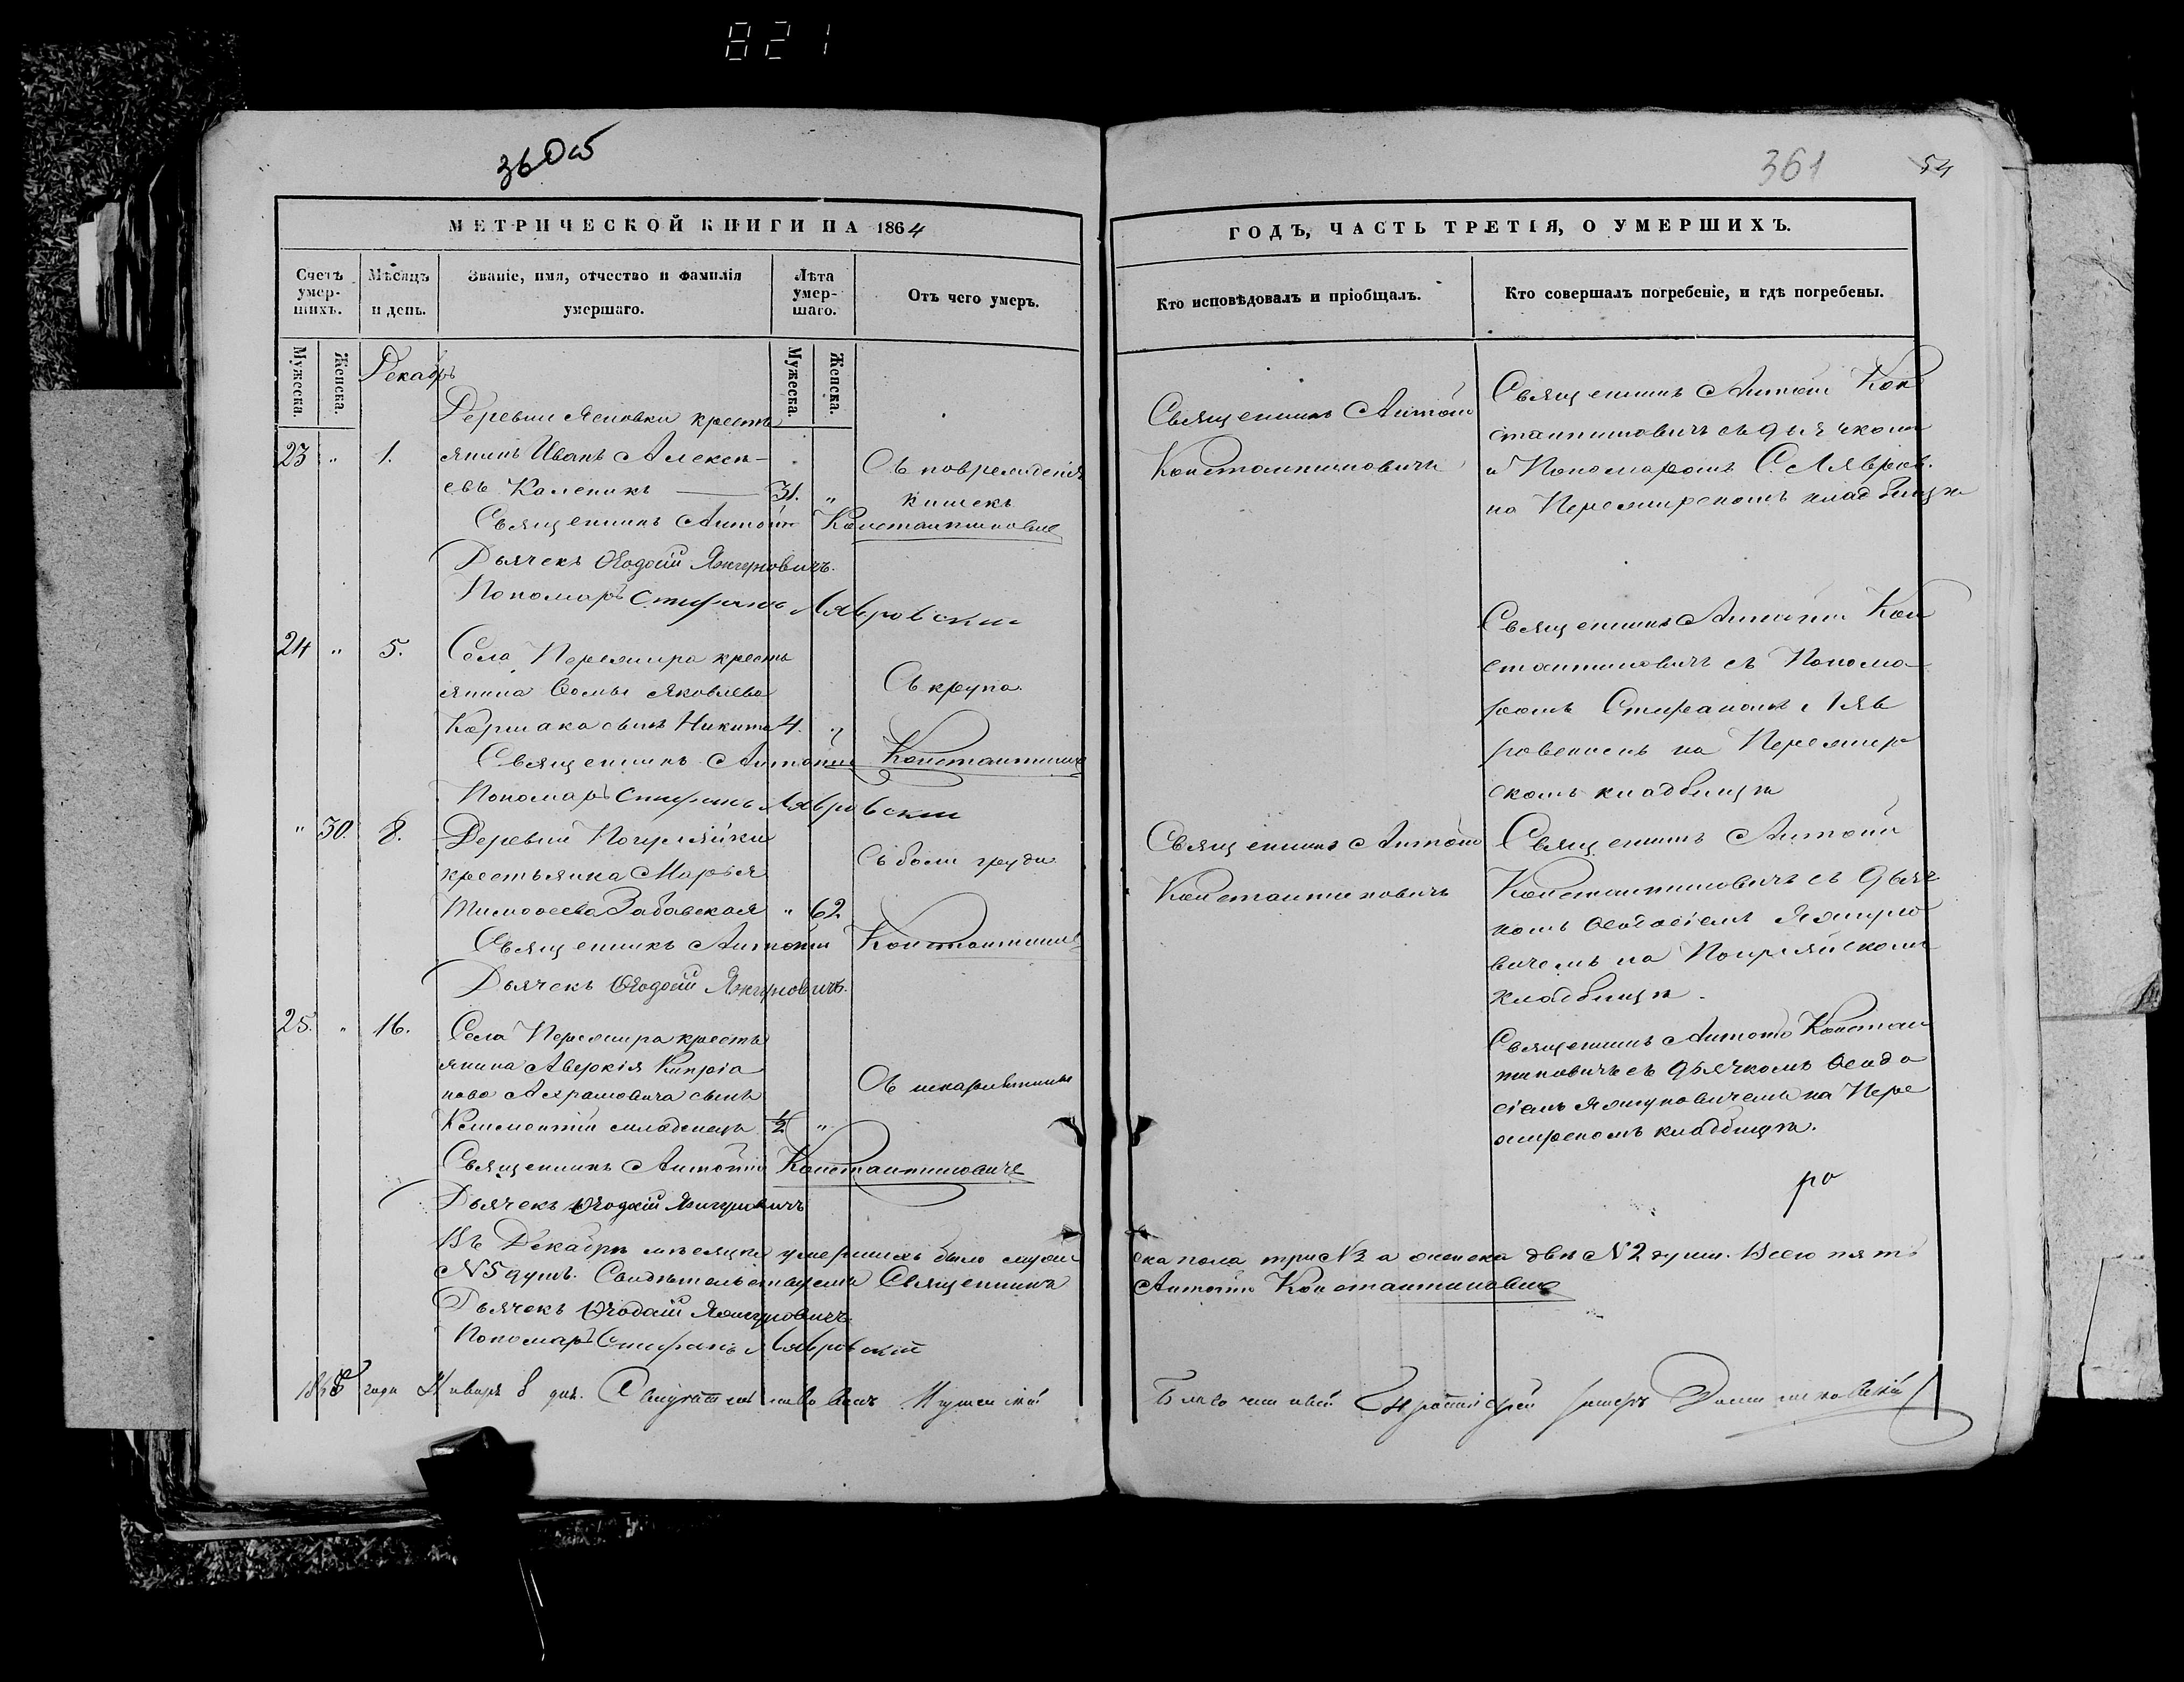 821
360 об
361
54
МЕТРИЧЕСКОЙ КНИГИ НА 1864
ГОДЪ, ЧАСТЬ ТРЕТІЯ, О УМЕРШИХЪ.
Счетъ умер-шихъ.
Мѣсяцъ и день.
Званіе, имя, отчество и фамилія умершаго.
Лѣта умер-шаго.
Отъ чего умеръ.
Кто исповѣдовалъ и пріобщалъ.
Кто совершалъ погребеніе, и гдѣ погребены.
Мужеска.
Женска.
Мужеска.
Женска.
Декабрь
Деревни Ясновки кресть
23 " 1. янинъ Иванъ Алексѣ-
евъ Каленикъ 31. "
Съ поврежденія
кишекъ
Священникъ Антоній Константиновичъ
Дьячекъ Ѳеодосій Яжгуновичъ.
Пономарь Стефанъ Лавровскій
Священникъ Антоній
Константиновичъ
Священникъ Антоній Кон
стантиновичъ съ дьячкомъ
и Пономаремъ С. Лавров.
на Перемирскомъ кладбищѣ
24 " 5. Села Перемира кресть
янина Ѳомы Яковлева
Коршака сынъ Никита 4. "
Съ крупа.
Священникъ Антоній Константинов
Пономарь Стефанъ Лавровскій
Священникъ Антоній Кон
стантиновичъ съ Понома
ремъ Стефаномъ Лав
ровскимъ на Перемир
скомъ кладбищѣ
" 30. 8. Деревни
крестьянка Марія
Тимоѳеева Забавская " 62.
Съ боли груди
Священникъ Антоній Константинов
Дьячекъ Ѳеодосій Яжгуновичъ.
Священникъ Антоній
Константиновичъ
Священникъ Антоній
Константиновичъ съ дьяч
комъ Ѳеодосіемъ Яжгуно
вичемъ на
кладбищѣ.
25. " 16. Села Перемира кресть
янина Аверкія Кипріа
нова Абрамовича сынъ
Климентій младенецъ 1/2 "
Съ шкарлятины
Священникъ Антоній Константиновичъ
Дьячекъ Ѳеодосій Яжгуновичъ
Священникъ Антоній Констан
тиновичъ съ дьячкомъ Ѳеодо
сіемъ Яжгуновичемъ на Пере
мирскомъ кладбищѣ.
Въ Декабрѣ мѣсяцѣ умершихъ было муже
ска пола три №3 а женска двѣ №2 души. Всего пять
№5 душъ. Свидѣтельствуемъ Священникъ
Антоній Константиновичъ
Дьячекъ Ѳеодосій Яжгуновичъ.
Пономарь Стефанъ Лавровскій
1865 года Января 8 дня. Свидѣтельствовалъ
Благочинный